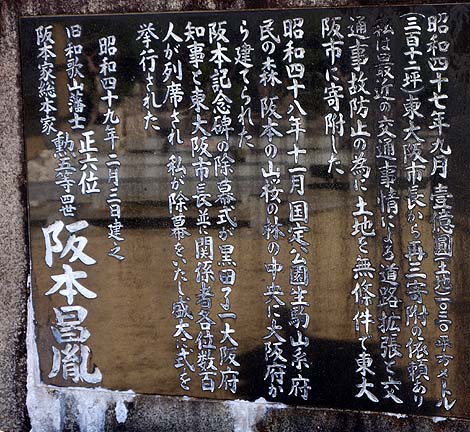 昭和四十七年九月 壹億圓(土地一〇二〇平方メートル
(三百十二坪)東大阪市長から再三寄附の依頼あり
私は最近の交通事情による道路拡張と交
通事故防止の為に土地を無條件で東大
阪市に寄附した
昭和四十八年十一月 国定公園生駒山系府
民の森 阪本の山桜の林の中央に大阪府が
ら建てられた
阪本記念碑の除幕式が黒田了一大阪府
知事と東大阪市長並に関係者各位数百
人が列席され 私が除幕をいたし盛大に式を
挙行された
昭和四十九年二月二日建之
旧和歌山藩士 正六位
阪本家総本家 勲五等 四世 阪本昌胤